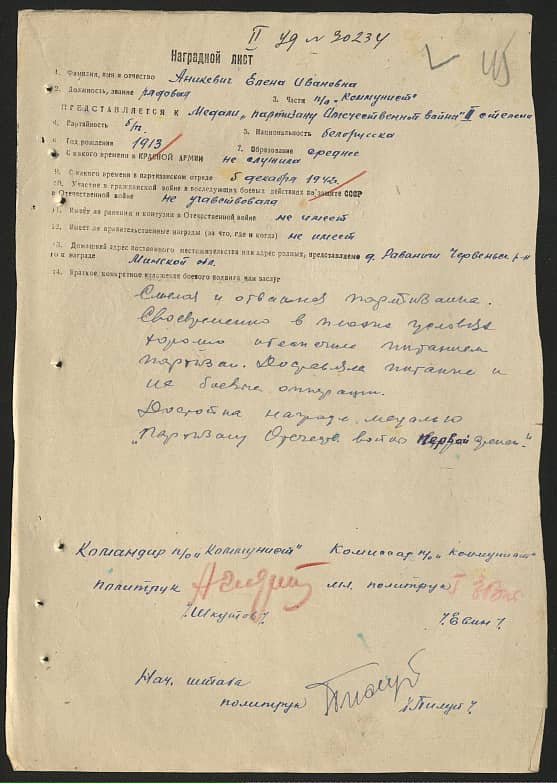 II Уд № 30234
115
Наградной лист
1. Фамилия, имя и отчество Аникевич Елена Ивановна
2. Должность, звание рядовая 3. Части п/о „Коммунист"
ПРЕДСТАВЛЯЕТСЯ К Медали „партизану Отечественной война" II степени
4. Партийность б/п. 5. Национальность белорусска
6. Год рождения 1913 7. Образование среднее
С какого времени в КРАСНОЙ АРМИИ не служила
9. С какого времени в партизанском отряде 5 декабря 1942г
10. Участие в гражданской войне и последующих боевых действиях по защите СССР
и Отечественной войне не учавствовала
11. Имеет ли ранения и контузии в Отечественной войне не имеет
12. Имеет ли правительственные награды (за что, где и когда) не имеет
13. Домашний адрес постоянного местожительства или адрес родных, представляемо д. Раваничи Червеньск. р-н
го к награде Минской обл.
14. Краткое, конкретное изложение боевого подвига или заслуг
Смелая и отважная партизанка.
Своевременно в плохих условиях
хорошо обеспечила питанием
партизан. Доставляла питание и
на боевые операции.
Достойна награде медалью
„Партизану Отечеств. войны Первой степен."
Командир п/о „Коммунист" Комиссар п/о „Коммунист"
политрук мл. политрук
/Шкутов/. /Евин/.
Нач. штаба
политрук /Пилуй/